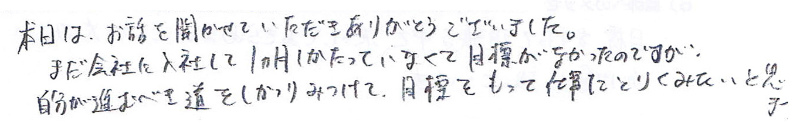 本日は、お話を聞かせていただきありがとうございました。
まだ会社に入社して1ヵ月しかたっていなくて目標がなかったのですが、
自分が進むべき道をしっかりみつけて、目標をもって仕事にとりくみたいと思います